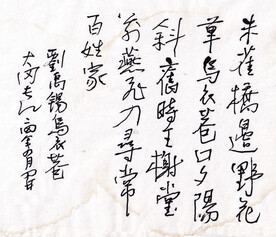 朱雀橋邊野花
草烏衣巷口夕陽
斜舊時王榭堂
前燕飛入尋常
百姓家
劉禹錫烏衣巷